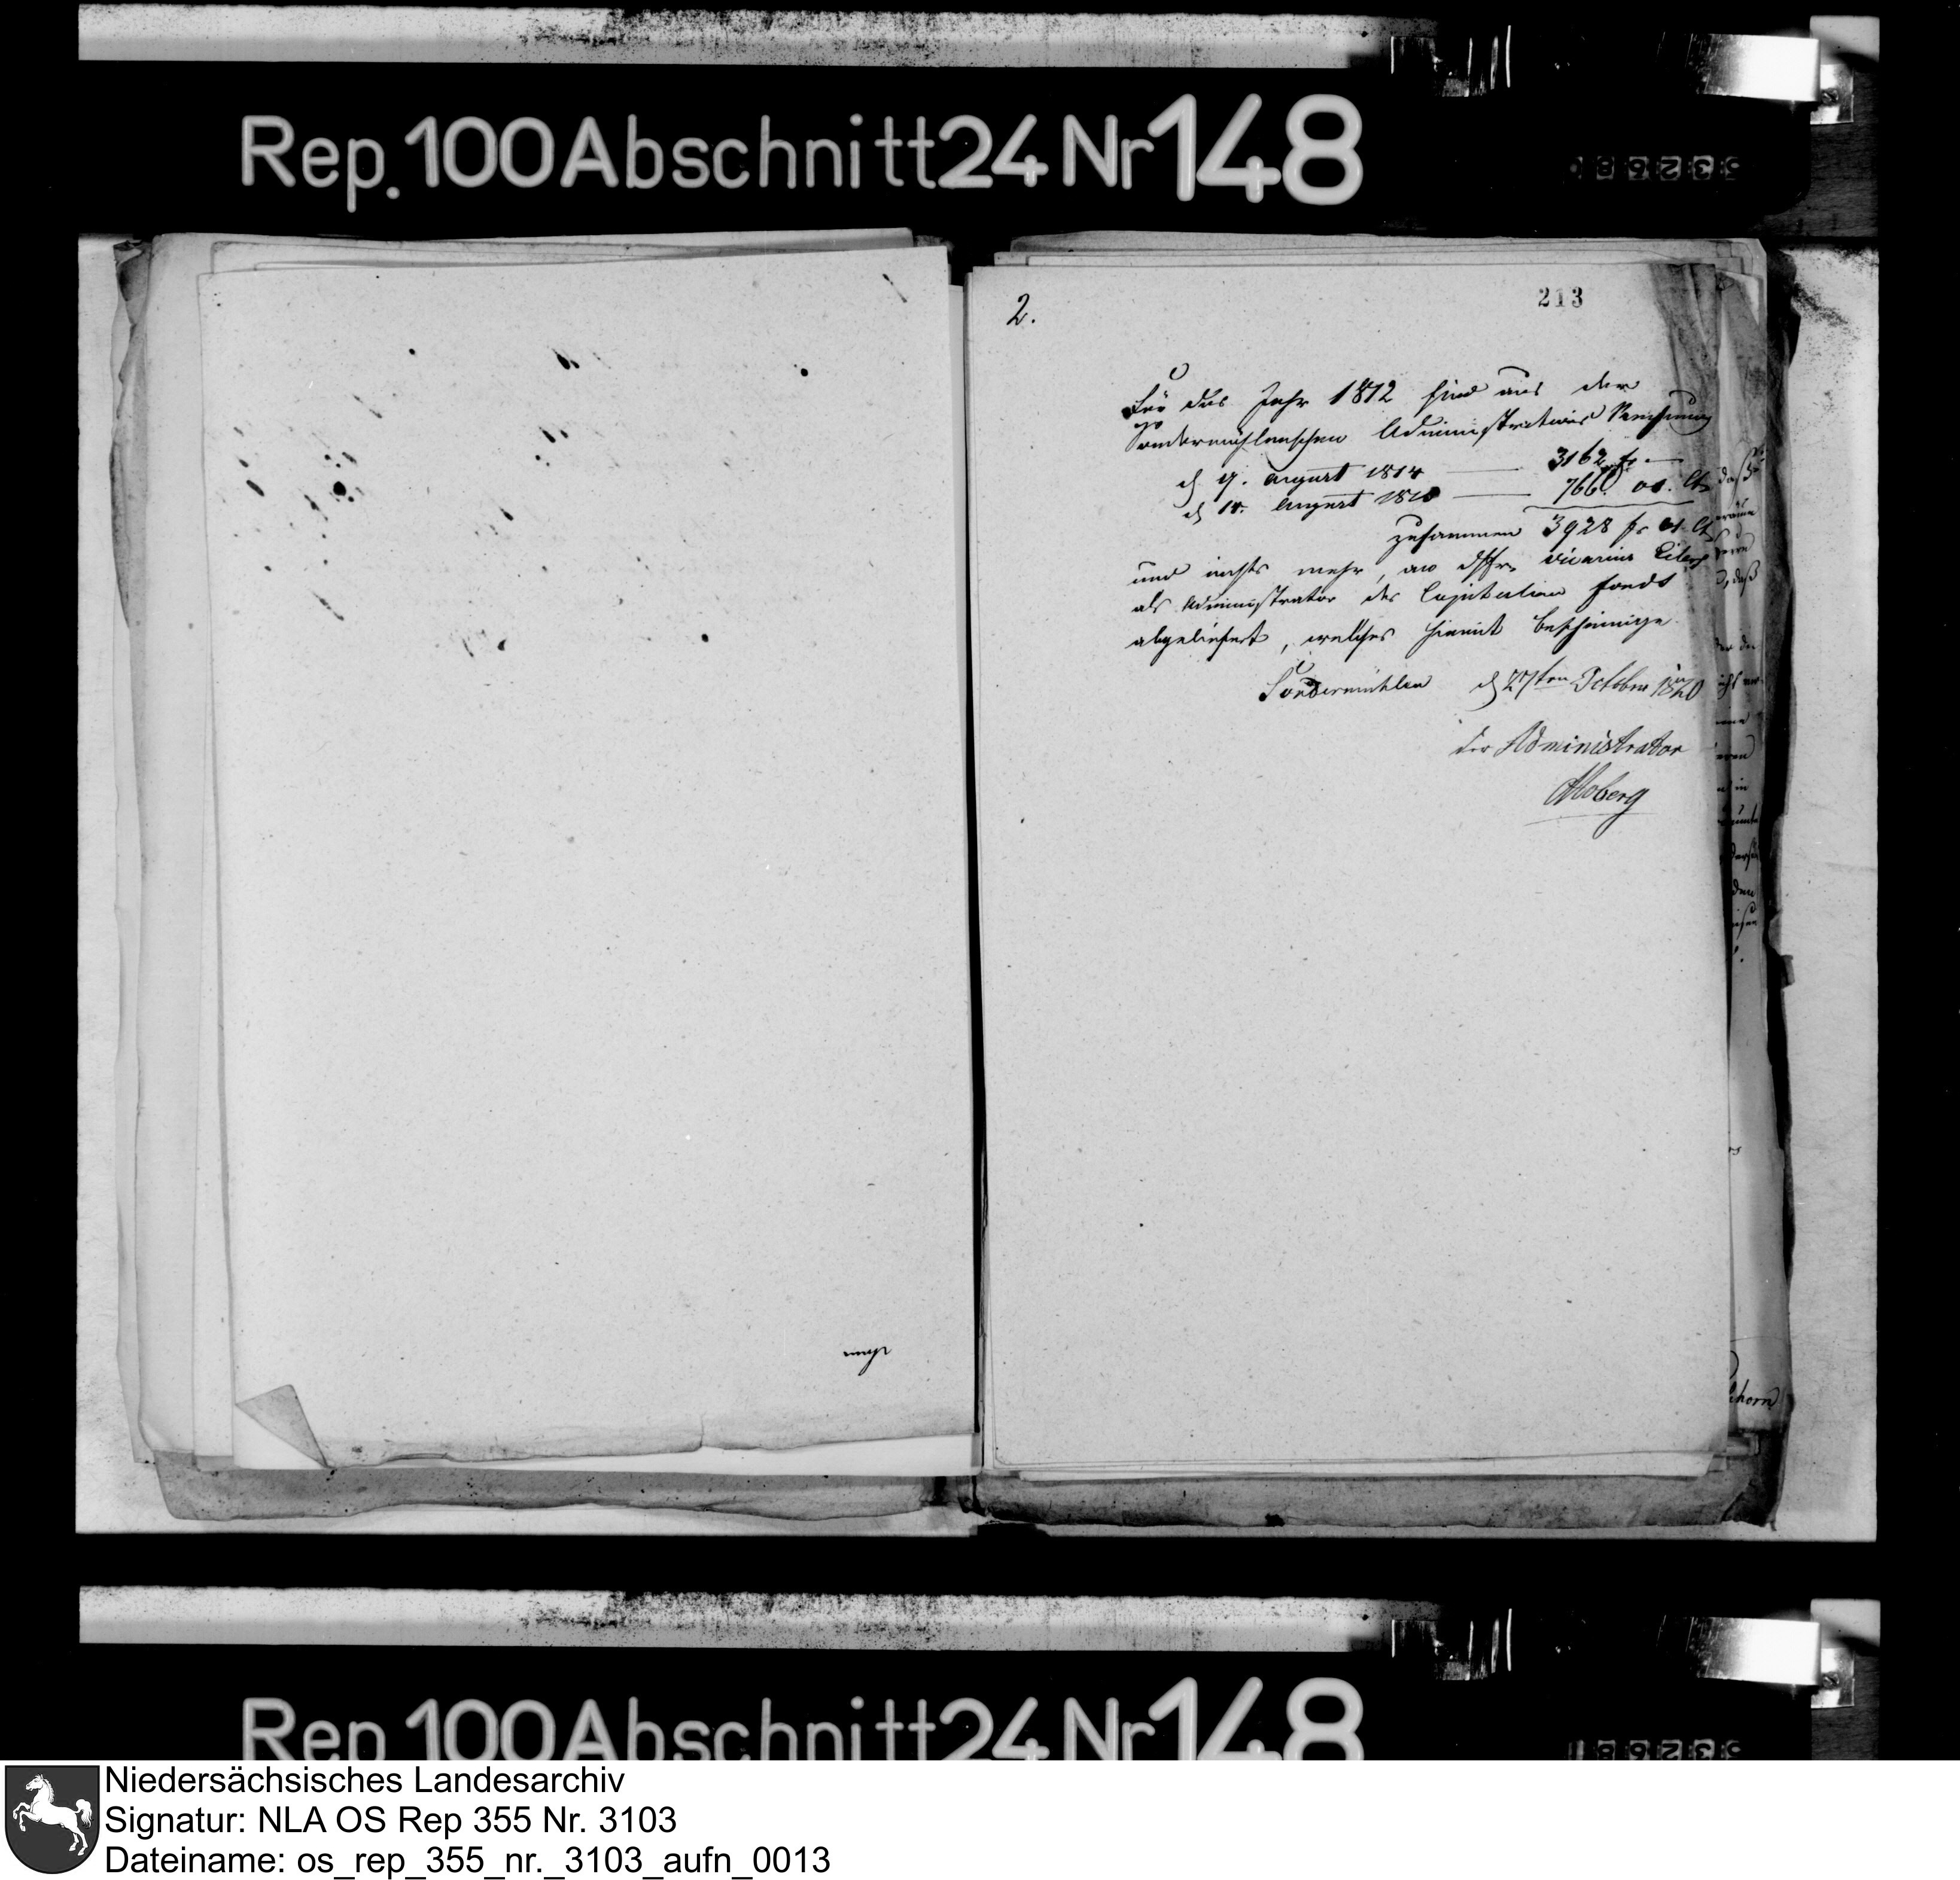 Rep. 100 Abschnitt 24 Nr 148
2.
213
Für das Jahr 1812 sind aus der
Sondermühlenschen Administrations Rechnung
d. 9. August 1814 — 3162 fr. —
d. 14. August 1818 — 766. 01. Ct
zusammen 3928 fr 01. Ct
und nichts mehr, an Vicarius Eilers
als Administrator des Capitalien fonds
abgeliefert, welches hiemit bescheinige
Sondermühlen d 27ten Octbr 1820
der Administrator
Moberg
Rep. 100 Abschnitt 24 Nr 148
Niedersächsisches Landesarchiv
Signatur: NLA OS Rep 355 Nr. 3103
Dateiname: os_rep_355_nr._3103_aufn_0013